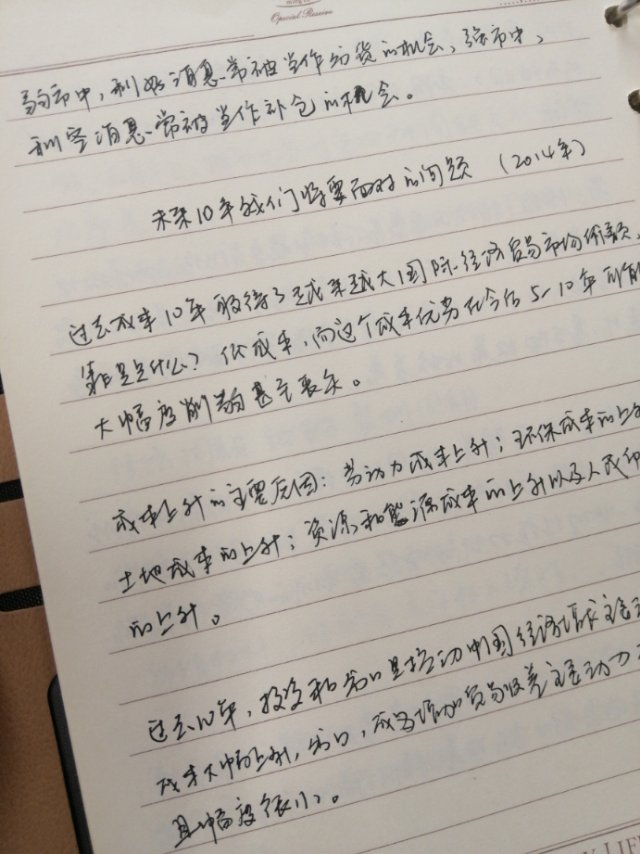 Special Reserve
弱市中，利好消息常被当作出货的机会，强市中，
利空消息常被当作补仓的机会。
未来10年我们将要面对的问题（2014年）
过去成本10年取得了越来越大国际经济贸易市场份额，
靠的是什么？低成本，而这个成本优势在今后5-10年可能
大幅度削弱甚至丧失。
成本上升的主要原因：劳动力成本上升；环保成本的上升
土地成本的上升；资源和能源成本的上升以及人民币
的上升。
过去10年，投资和出口是拉动中国经济增长主要
成本大幅上升，出口，成为增加贸易收益主要动力
且幅度很小。
LIFE